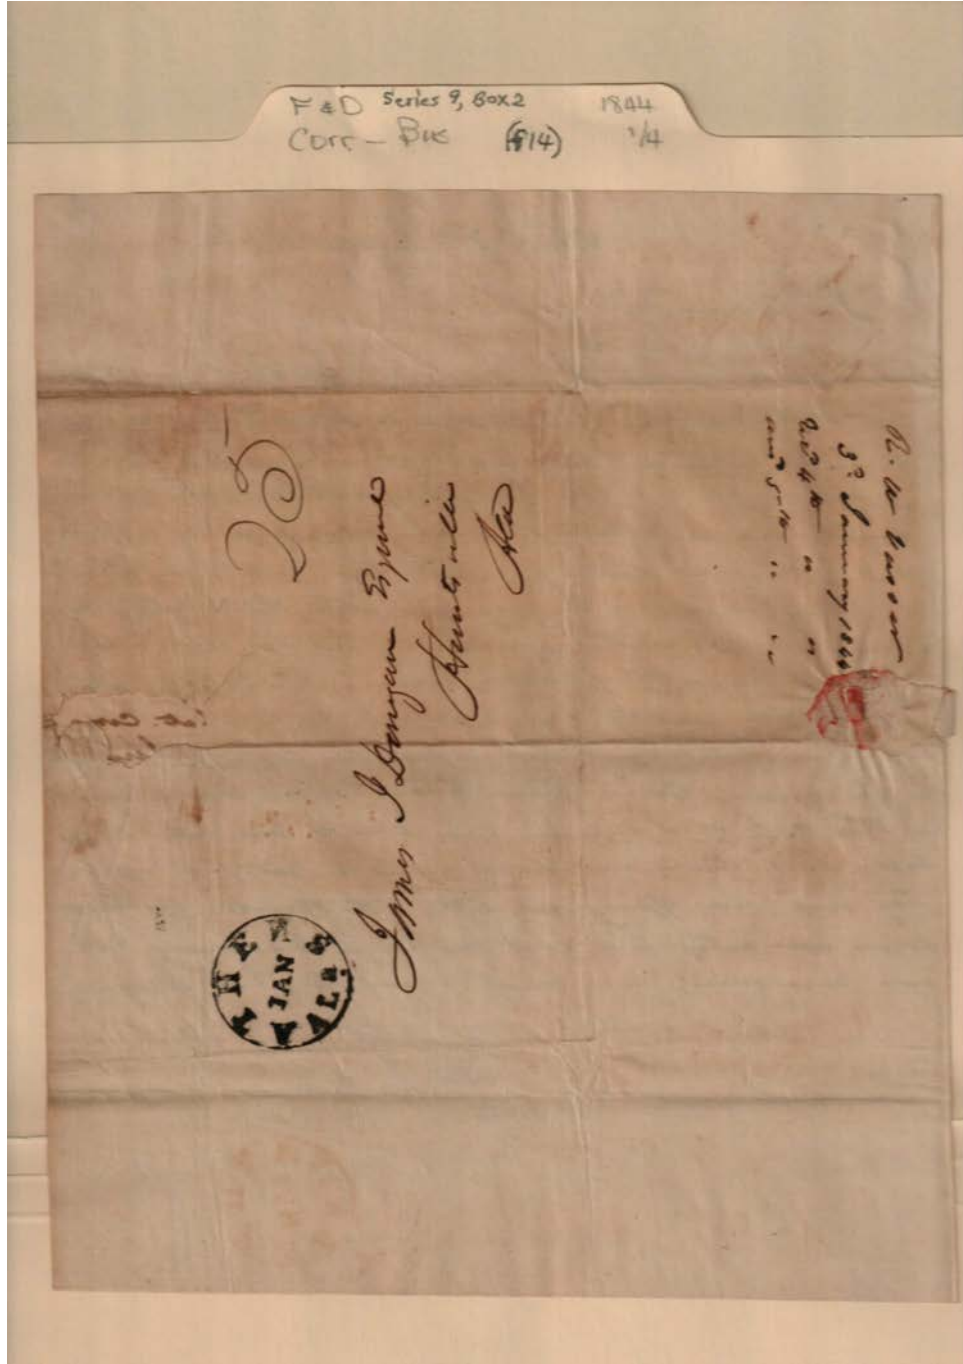 F & D Series 9, Box 2 1844
Corr - Bus (f14) 1/4
25
James J Donegan Esquire
Huntsville
Ala
ATHENS
JAN
ALA
R. W. Vasser
3d January 1844
Recd 4th " "
ansd 5th " "